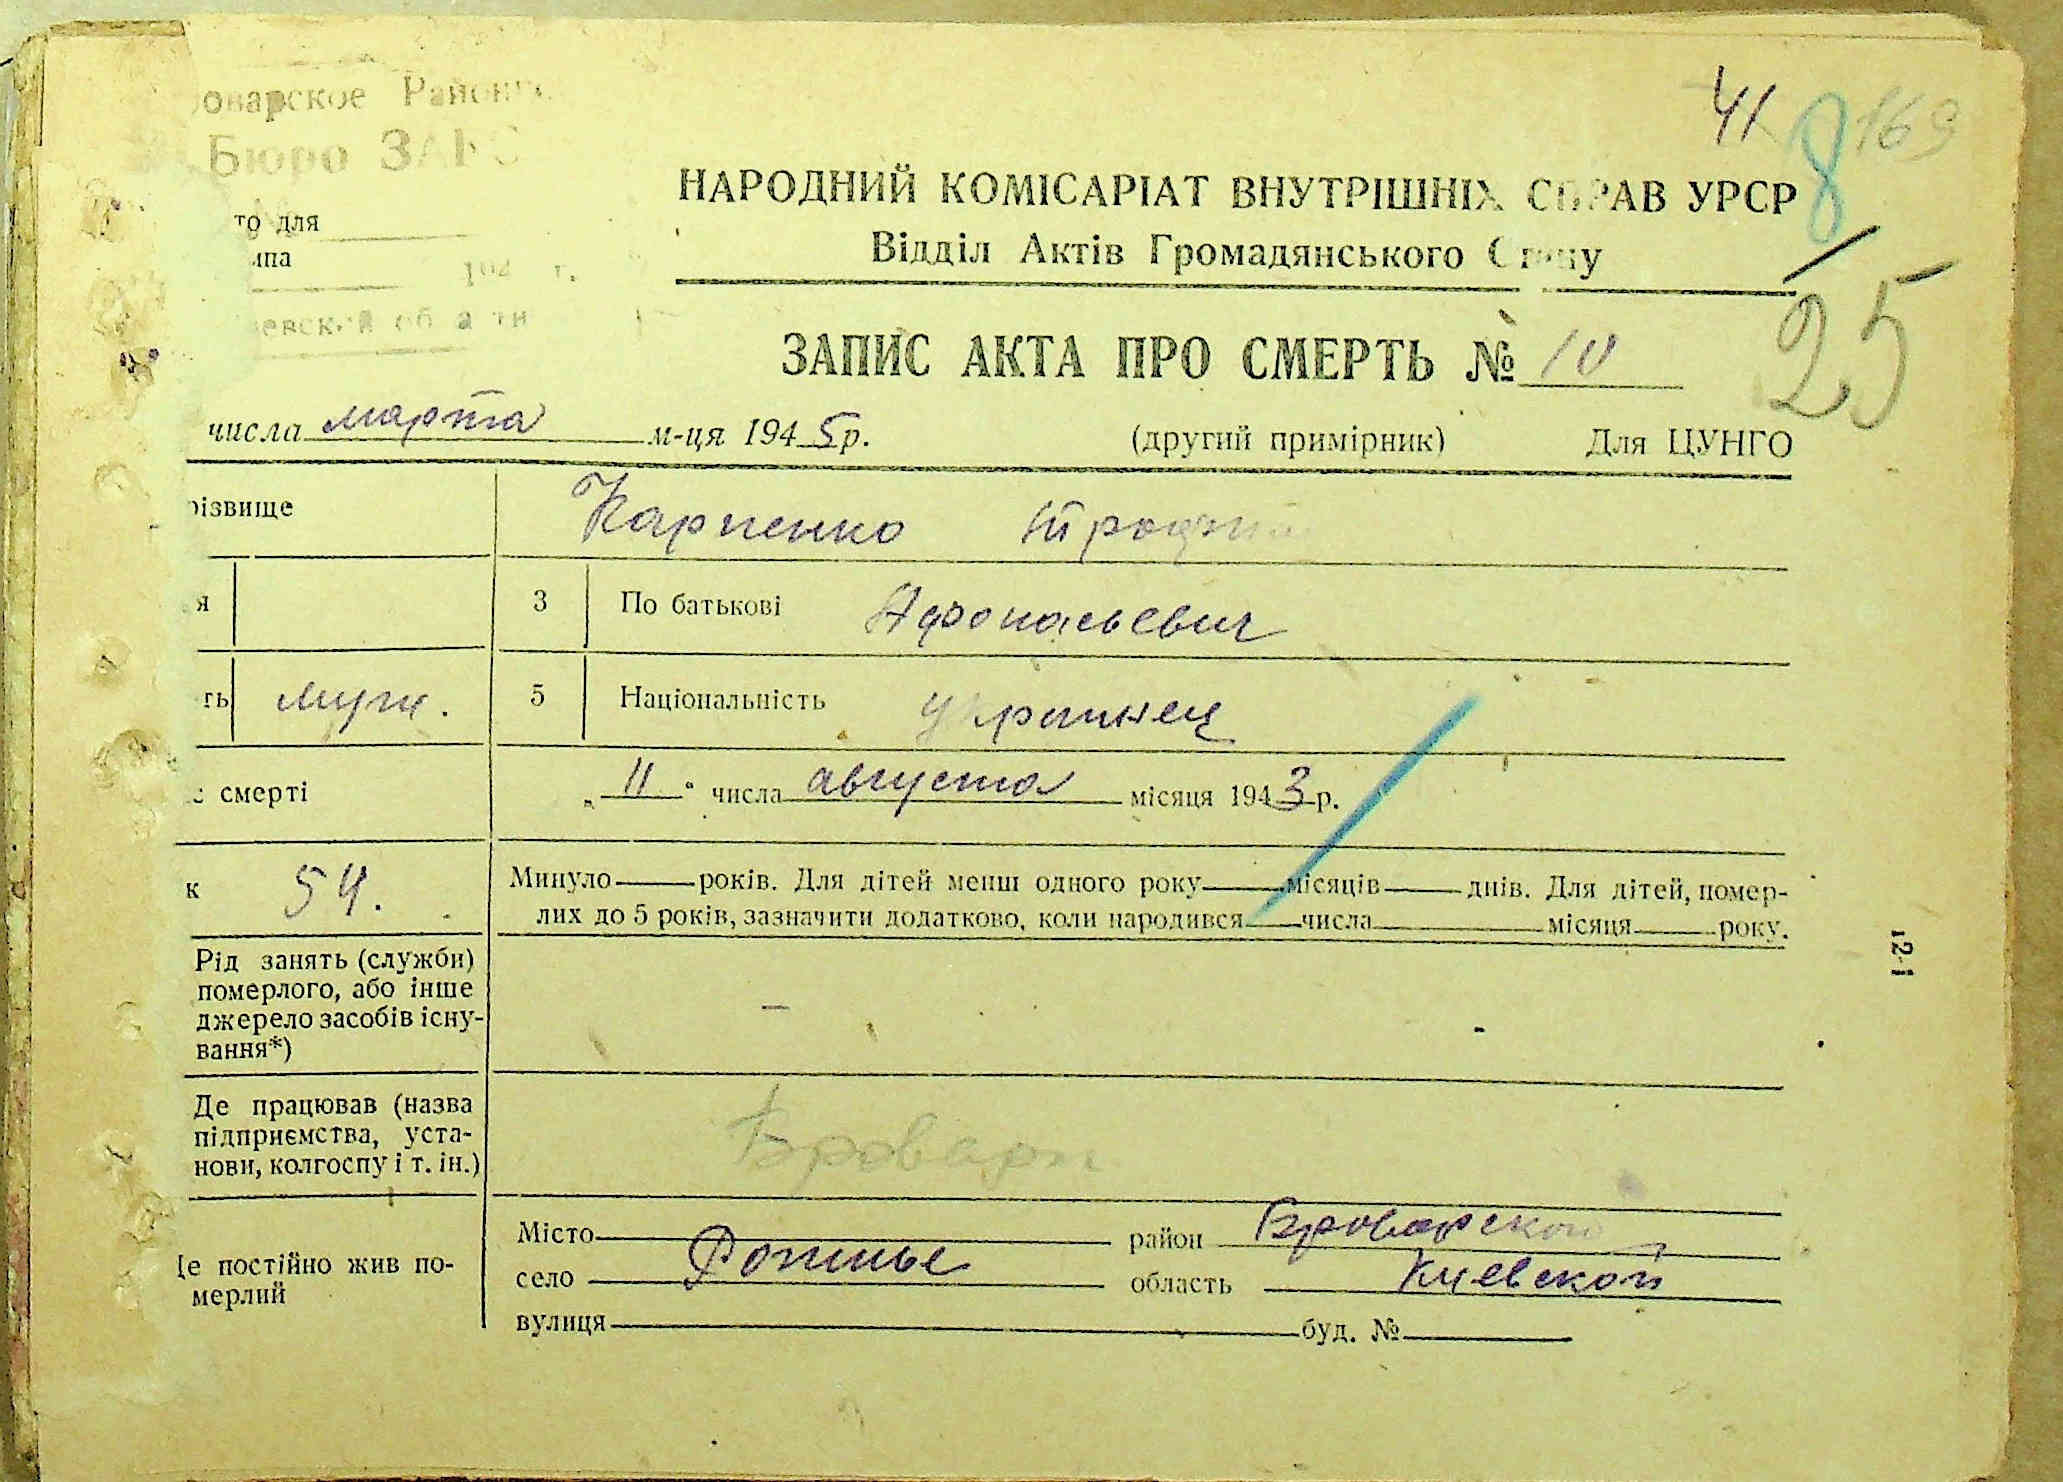 41 8 169
оварское Районн
Бюро ЗАГС
НАРОДНИЙ КОМІСАРІАТ ВНУТРІШНІХ СПРАВ УРСР
то для
мпа
Відділ Актів Громадянського Стану
194 г.
евской области
25
ЗАПИС АКТА ПРО СМЕРТЬ № 10
числа марта м-ця 1945 р.
(другий примірник) Для ЦУНГО
різвище Карпенко
я 3 По батькові Афонасьевич
ть муж. 5 Національність украинец
с смерті „11“ числа августа місяця 1943 р.
к 54. Минуло років. Для дітей менш одного року місяців днів. Для дітей, помер-
лих до 5 років, зазначити додатково, коли народився числа місяця року.
Рід занять (служби)
померлого, або інше
джерело засобів існу-
вання*)
—
121
Де працював (назва
підприємства, уста-
нови, колгоспу і т. ін.)
Бровари
Де постійно жив по-
мерлий
Місто район Броварской
село Рожны область Киевской
вулиця буд. №